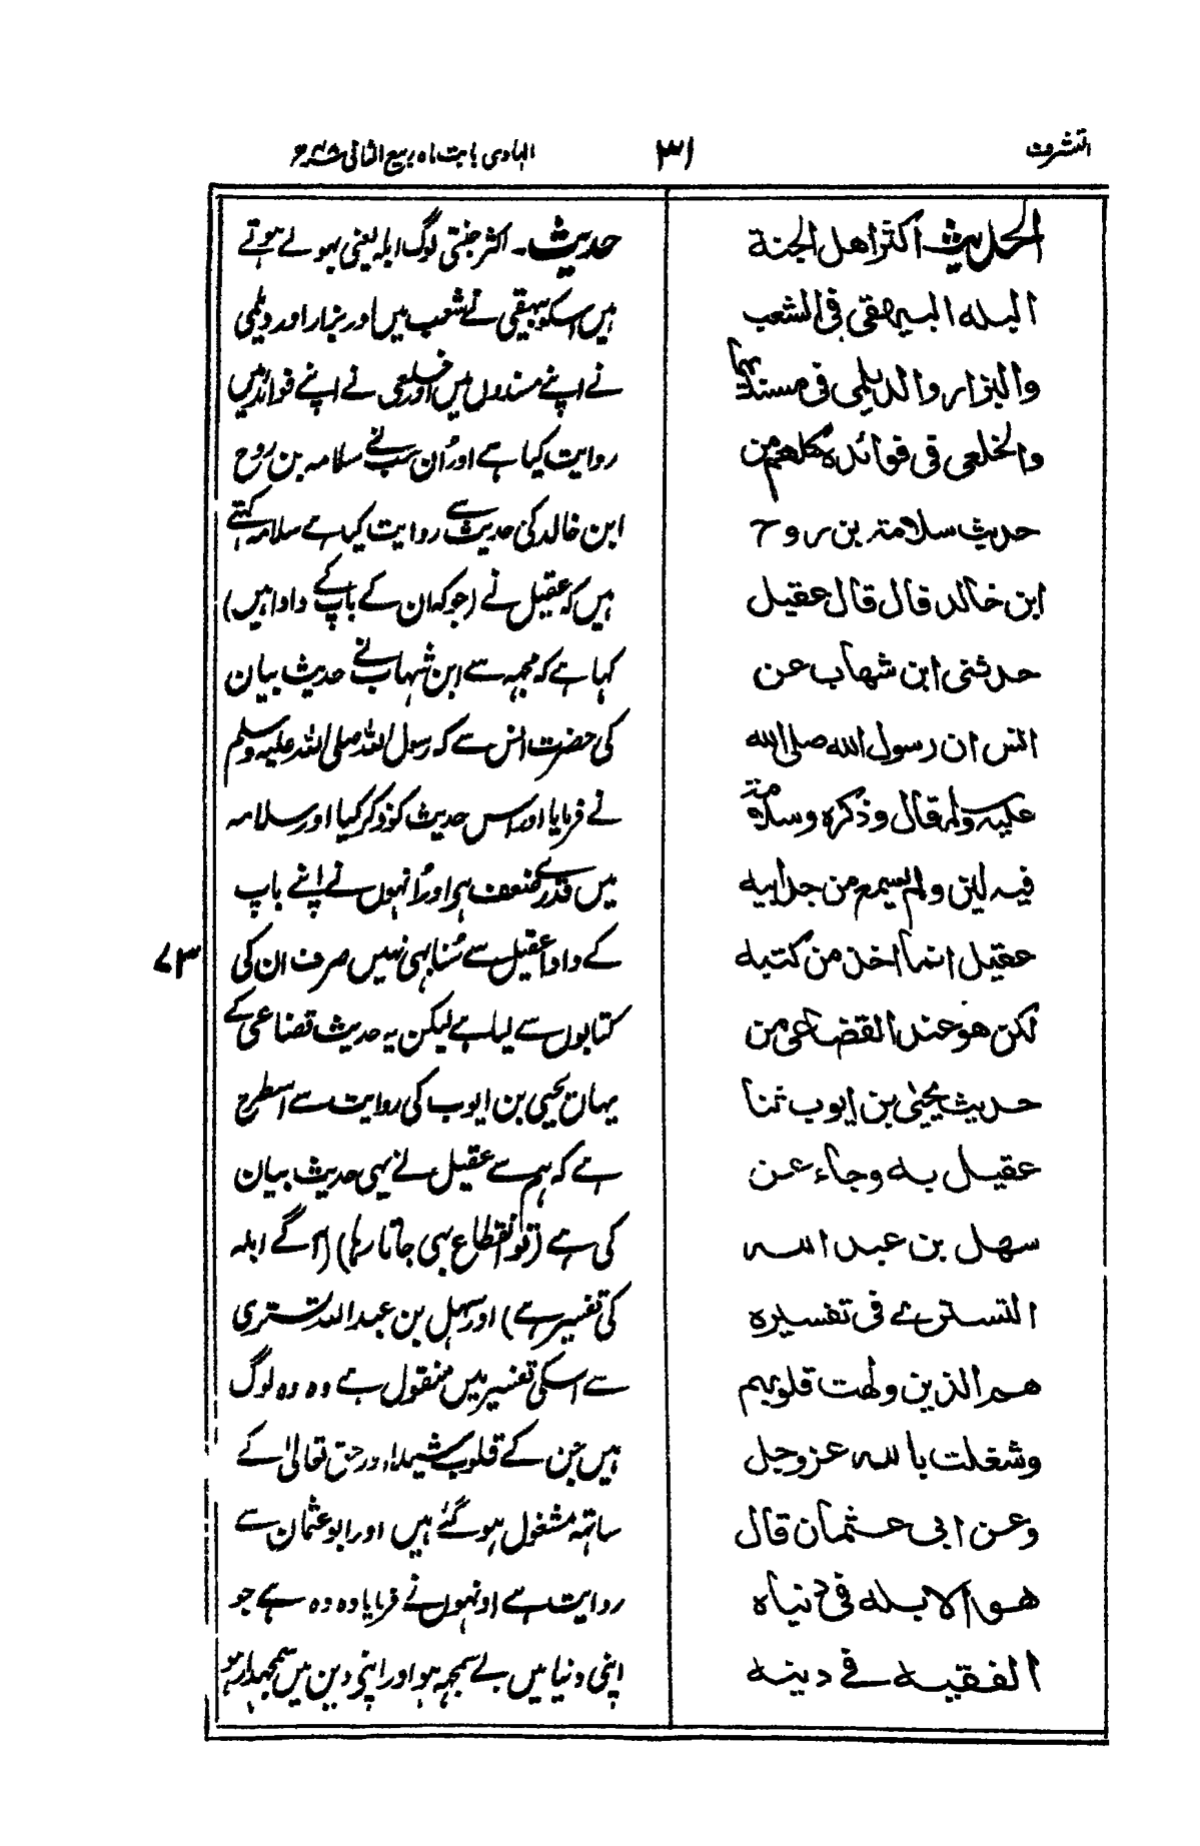 التشرف
۳۱
الہادی بابت ماہ ربیع الثانی
الحدیث اکثر اهل الجنة
البله البیهقی فی الشعب
والبزار والدیلمی فی مسندیهما
والخلعی فی فوائده کلهم من
حدیث سلامة بن روح
ابن خالد قال قال عقیل
حدثنی ابن شهاب عن
انس ان رسول الله صلی الله
علیه وسلم قال وذکره وسلامة
فیه لین ولم یسمع من جد ابیه
عقیل انما اخذ من کتبه
لکن هو عند القضاعی من
حدیث یحیٰی بن ایوب ثنا
عقیل به وجاء عن
سهل بن عبد الله
التستری فی تفسیره
هم الذین ولهت قلوبهم
وشغلت بالله عز وجل
وعن ابی عثمان قال
هو الابله فی دنیاه
الفقیه فی دینه
حدیث۔ اکثر جنتی لوگ ابلہ یعنی بہولے ہوتے
ہیں اسکو بیہقی نے شعب میں اور بزار اور دیلمی
نے اپنے مسندوں میں اور خلعی نے اپنے فوائد میں
روایت کیا ہے اور اُن سب نے سلامہ بن روح
ابن خالد کی حدیث سے روایت کیا ہے سلامہ کہتے
ہیں کہ عقیل نے (جو کہ ان کے باپ کے دادا ہیں)
کہا ہے کہ مجہہ سے ابن شہاب نے حدیث بیان
کی حضرت انس سے کہ رسول اللہ صلی اللہ علیہ وسلم
نے فرمایا اور اس حدیث کو ذکر کیا اور سلامہ
میں قدرے ضعف ہی اور اُنہوں نے اپنے باپ
کے دادا عقیل سے سُنا ہی نہیں صرف ان کی
۷۳
کتابوں سے لیا ہے لیکن یہ حدیث قضاعی کے
یہاں یحیی بن ایوب کی روایت سے اسطرح
ہے کہ ہم سے عقیل نے یہی حدیث بیان
کی ہے (تو انقطاع بہی جاتا رہا) (آگے ابلہ
کی تفسیر ہے) اور سہل بن عبد اللہ تستری
سے اسکی تفسیر میں منقول ہے وہ وہ لوگ
ہیں جن کے قلوب شیدا اور حق تعالیٰ کے
ساتہہ مشغول ہو گئے ہیں اور ابو عثمان سے
روایت ہے اونہوں نے فرمایا وہ وہ ہے جو
اپنی دنیا میں بے سمجہہ ہو اور اپنی دین میں سمجہدار ہو